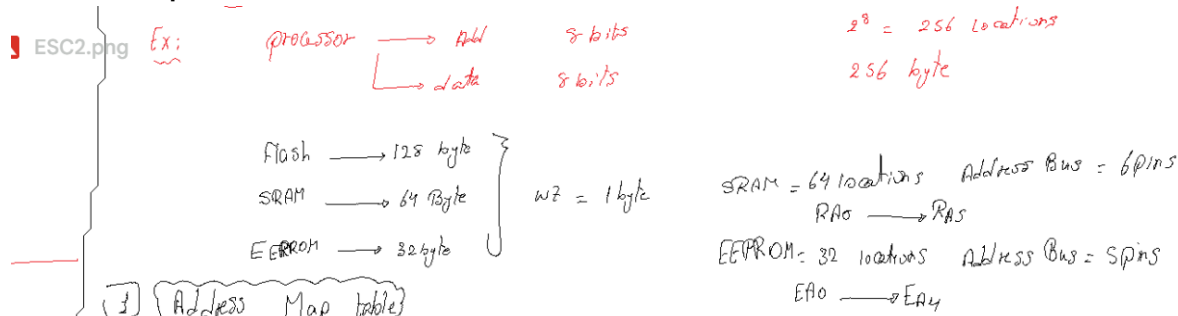 ESC2.png
Ex: processor → Add 8 bits 2⁸ = 256 locations
→ data 8 bits 256 byte
Flash → 128 byte
SRAM → 64 Byte
EEPROM → 32 byte
WZ = 1 byte
SRAM = 64 locations Address Bus = 6 pins
RA0 → RA5
EEPROM = 32 locations Address Bus = 5 pins
EA0 → EA4
1 Address Map table